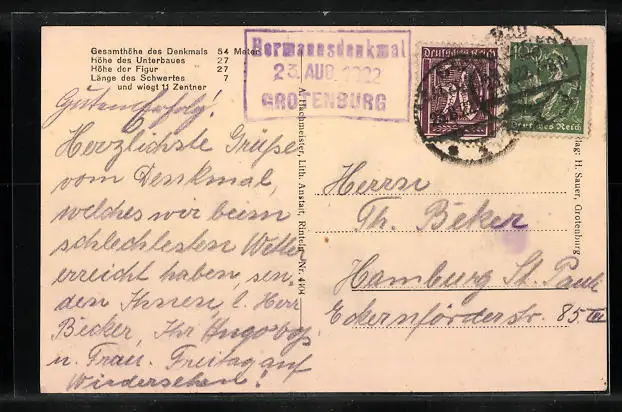 Gesamthöhe des Denkmals 54 Meter
Höhe des Unterbaues 27 "
Höhe der Figur 27 "
Länge des Schwertes 7 "
und wiegt 11 Zentner
Hermannsdenkmal
23. AUG. 1922
GROTENBURG
Deutsches Reich
Deutsches Reich
Guten Erfolg!
Herzlichste Grüße
vom Denkmal,
welches wir beim
schlechtesten Wetter
erreicht haben, sen-
den Ihnen, l. Herr
Becker, Ihr
u. Frau. Freitag auf
Wiedersehen!
A. Hachmeister, Lith. Anstalt, Rinteln Nr. 4404
Herrn
Th. Beker
Hamburg St. Pauli
Eckernförderstr. 85 III
Verlag: H. Sauer, Grotenburg